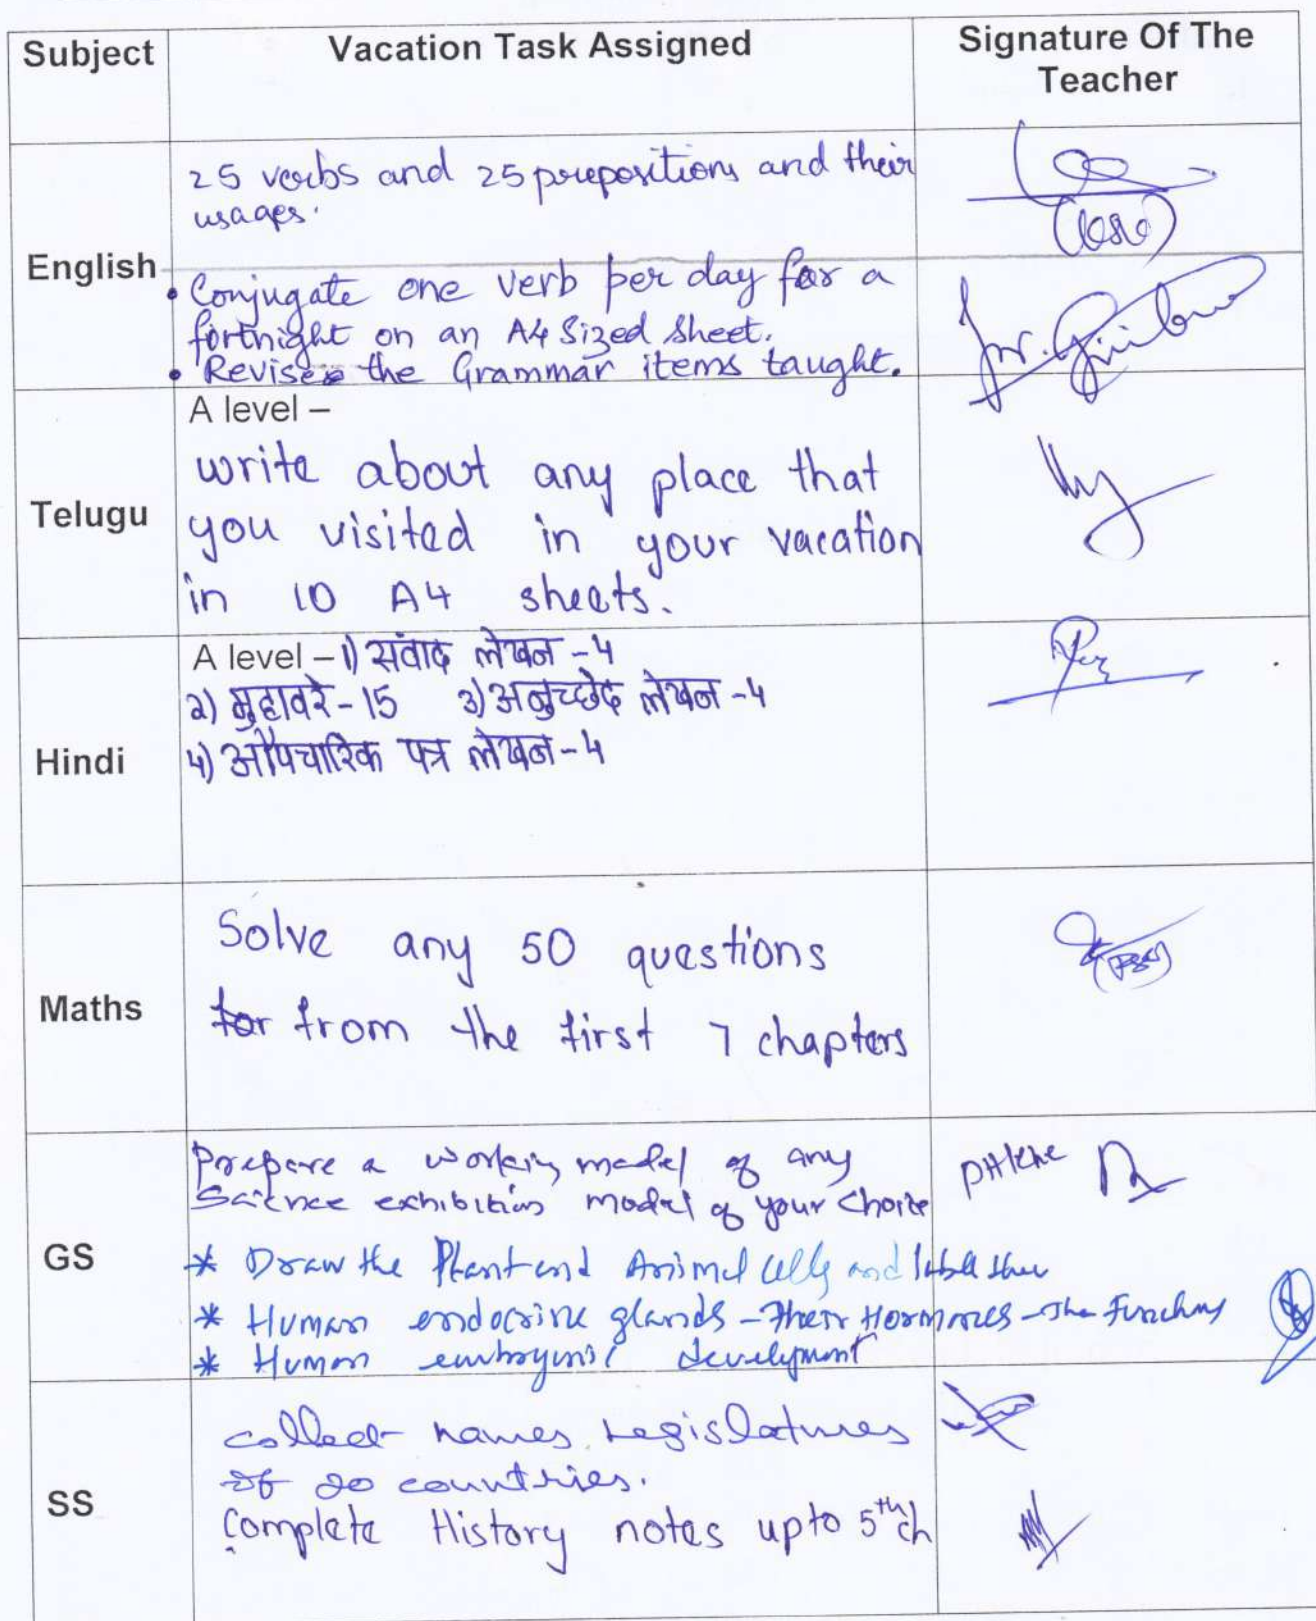 Subject Vacation Task Assigned Signature Of The
Teacher
English
25 verbs and 25 prepositions and their
usages.
• Conjugate one verb per day for a
fortnight on an A4 Sized sheet.
• Revise the Grammar items taught.
Telugu
A level –
write about any place that
you visited in your vacation
in 10 A4 sheets.
Hindi
A level – 1) संवाद लेखन - 4
2) मुहावरे - 15 3) अनुच्छेद लेखन - 4
4) औपचारिक पत्र लेखन - 4
Maths
Solve any 50 questions
for from the first 7 chapters
GS
Prepare a working model of any
Science exhibition model of your choice
* Draw the Plant and Animal cells and label
* Human endocrine glands - Their Hormones - The
* Human development
SS
collect names Legislatures
of 20 countries.
Complete History notes upto 5th ch